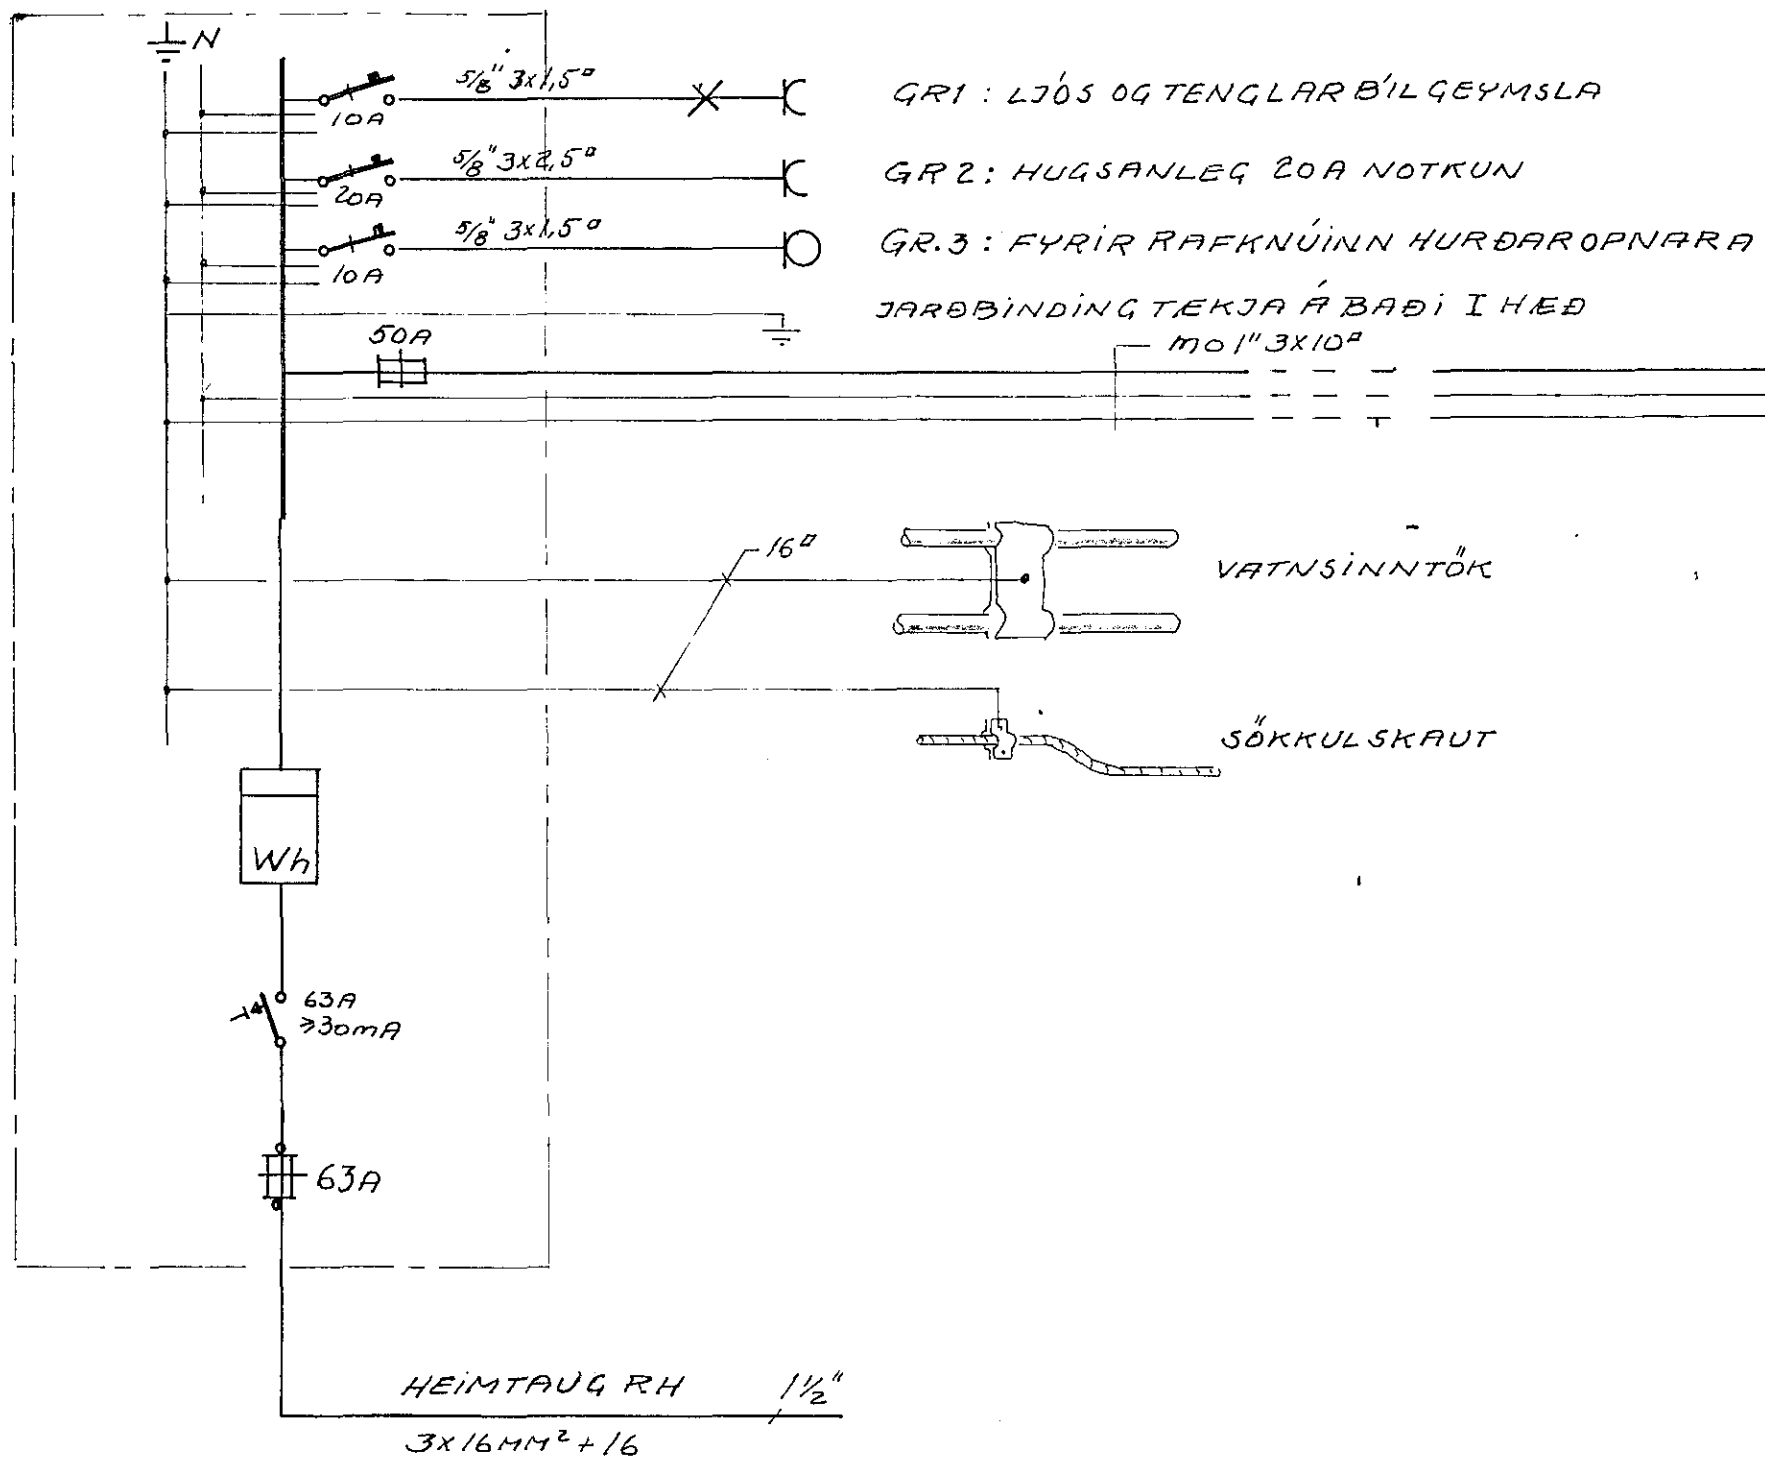 N
5/8" 3x1,5▫
10A
GR1 : LJÓS OG TENGLAR BÍLGEYMSLA
5/8" 3x2,5▫
20A
GR2 : HUGSANLEG 20A NOTKUN
5/8" 3x1,5▫
10A
GR.3 : FYRIR RAFKNÚINN HURÐAROPNARA
JARÐBINDING TÆKJA Á BAÐI I HÆÐ
50A
mo 1" 3x10▫
16▫
VATNSINNTÖK
SÖKKULSKAUT
Wh
63A
≥30mA
63A
HEIMTAUG RH 1½"
3x16MM²+16